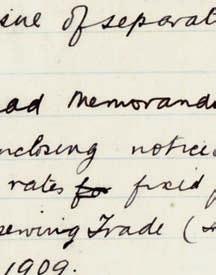 of separat
ad Memorand
nclosing notice
rates for fixed
sewing Trade (
1909.